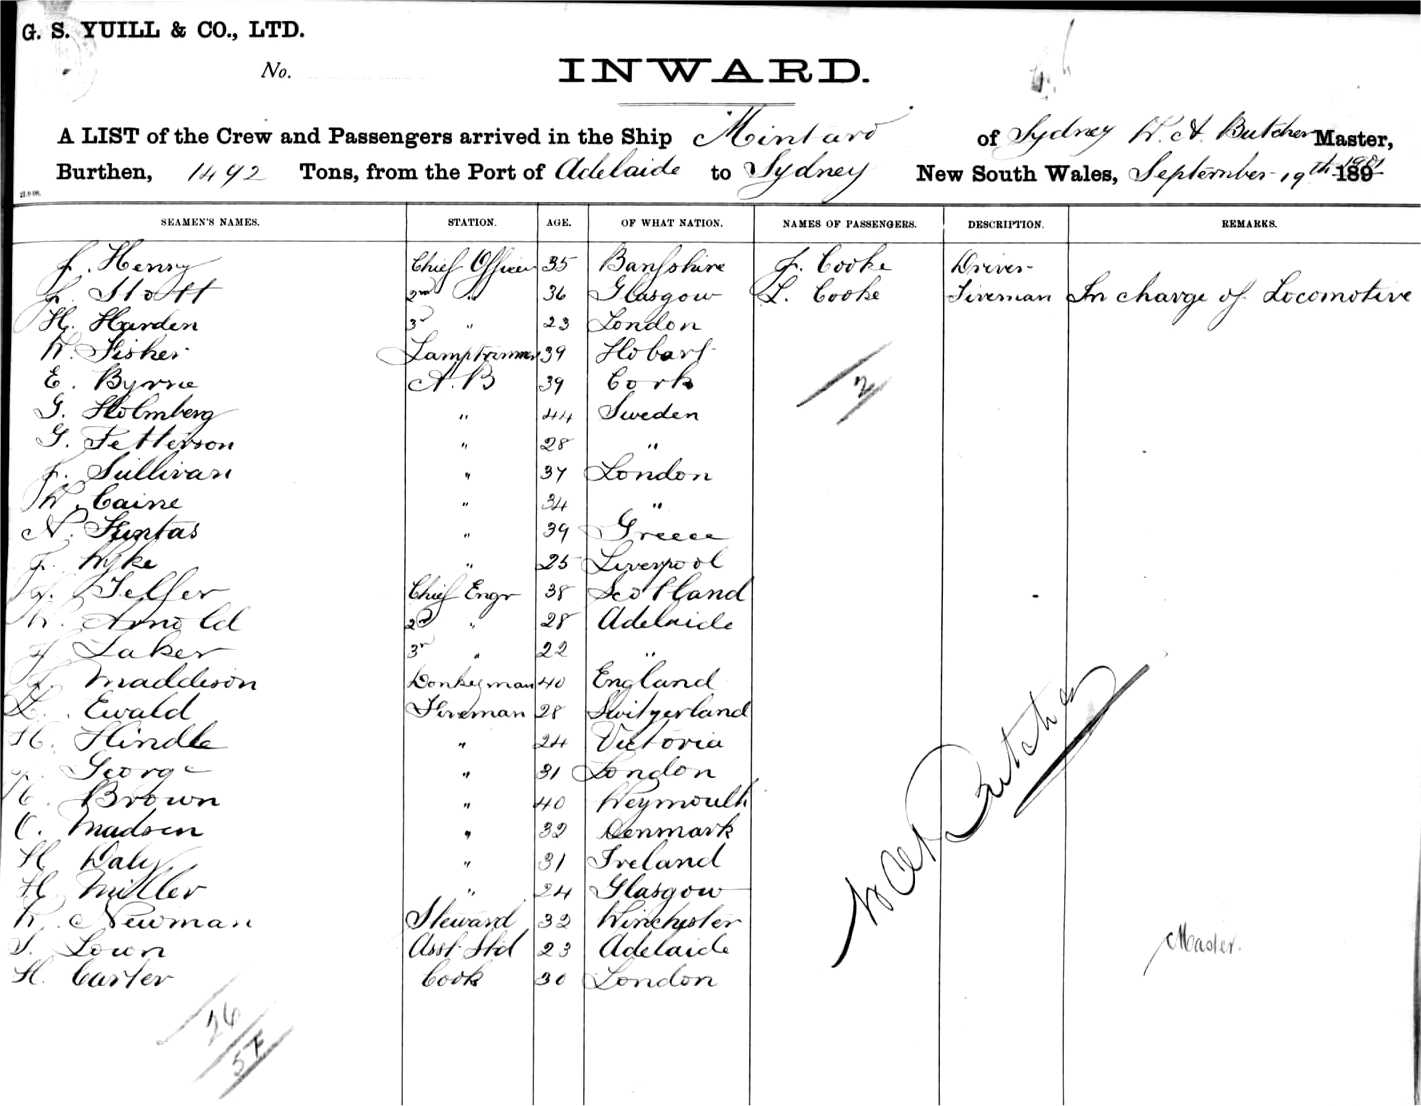 G. S. YUILL & CO., LTD.
No.
INWARD.
A LIST of the Crew and Passengers arrived in the Ship Mintaro of Sydney W. A. Butcher Master,
Burthen, 1492 Tons, from the Port of Adelaide to Sydney New South Wales, September 19th 189
SEAMEN'S NAMES. STATION. AGE. OF WHAT NATION. NAMES OF PASSENGERS. DESCRIPTION. REMARKS.
J. Henry Chief Officer 35 Banfshire J. Cooke Driver
Stott 2nd " 36 Glasgow L. Cooke Fireman In charge of Locomotive
H. Harden 3r " 23 London
W. Fisher Lamptrimmer 39 Hobart
E. Byrne A.B 39 Cork
G. Holmberg " 44 Sweden
G. Petterson " 28 "
J. Sullivan " 37 London
W. Caine " 34 "
N. Funtas " 39 Greece
Wyke " 25 Liverpool
Telfer Chief Engr 38 Scotland
W. Arnold 2d " 28 Adelaide
Laker 3r " 22 "
Maddison Donkeyman 40 England
Ewald Fireman 28 Switzerland
H. Hindle " 24 Victoria
George " 31 London
Brown " 40 Weymouth
C. Madsen " 32 Denmark
H. Daly " 31 Ireland
H. Miller " 24 Glasgow
W. Newman Steward 32 Winchester
Loun Asst Std 23 Adelaide
H. Carter Cook 30 London
2
W A Butcher
Master.
26
5F